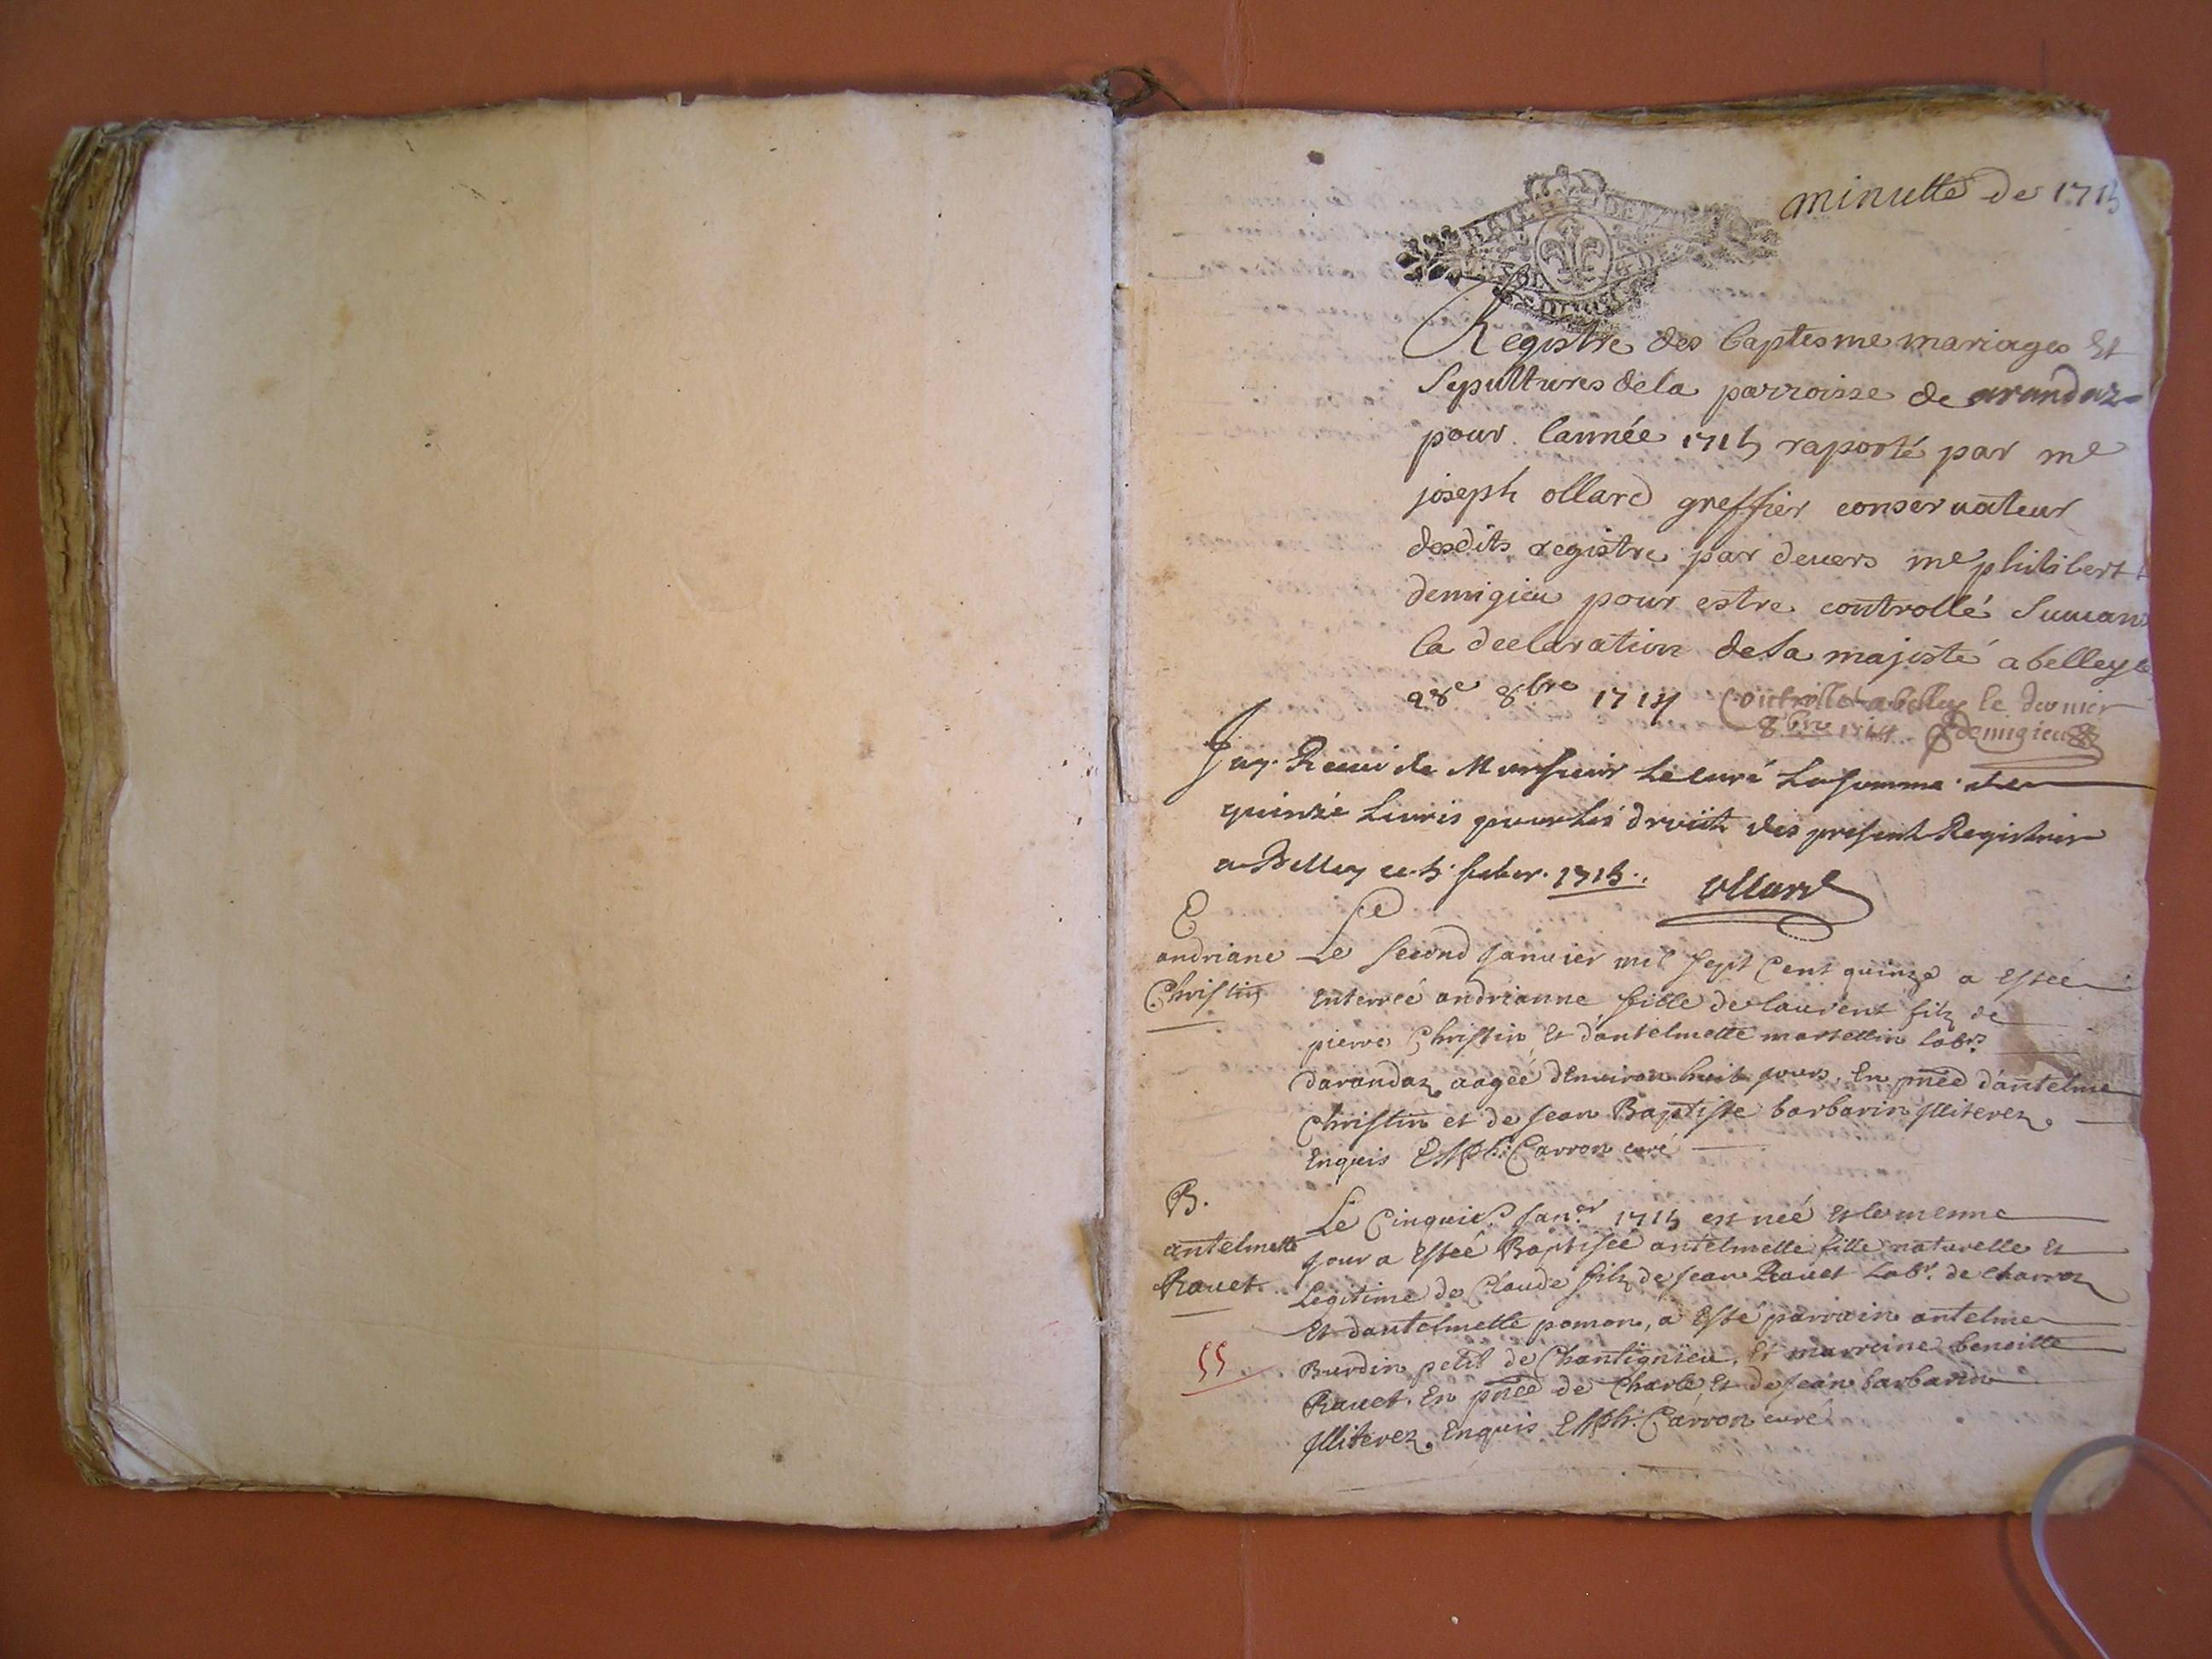 minutte de 1715
Registre des baptesme mariages Et
Sepultures de la parroisse de arandaz
pour lannée 1715 raporté par me
joseph ollard greffier conservateur
desdits registre par devers me philibert
demigieu pour estre controllé Suivan
la declaration de Sa majesté a belley le
28e 8bre 1714 Controllé a belley le dernier
8bre 1714 Demigieu
Jay Receu de Monsieur Le curé La somme de
quinze Livres pour Les droits des present Registres
a Belley ce 5 1715
Ollard
E
andriane
Christin
Le second Janvier mil sept Cent quinze a esteé
Enterreé andrianne fille de laurent filz de
pierre Christin Et dantelmette martellin labr
darandaz aageé denviron huit jours, En pnce dantelme
Christin et de Jean Baptiste barbarin illiterez
Enquis Ph. Carron curé
B.
antelmette
Ravet
55
Le Cinquie Janer 1715 est neé et le mesme
Jour a esteé Baptiseé antelmette fille naturelle Et
Legitime de Claude filz de Jean Ravet Labr. de charvoz
Et dantelmette pomon, a esté parrain antelme
Burdin petit de Chantignieu, Et marreine benoitte
Ravet. En pnce de Charle Et de Jean barbarin
illiterez. Enquis Ph. Carron curé